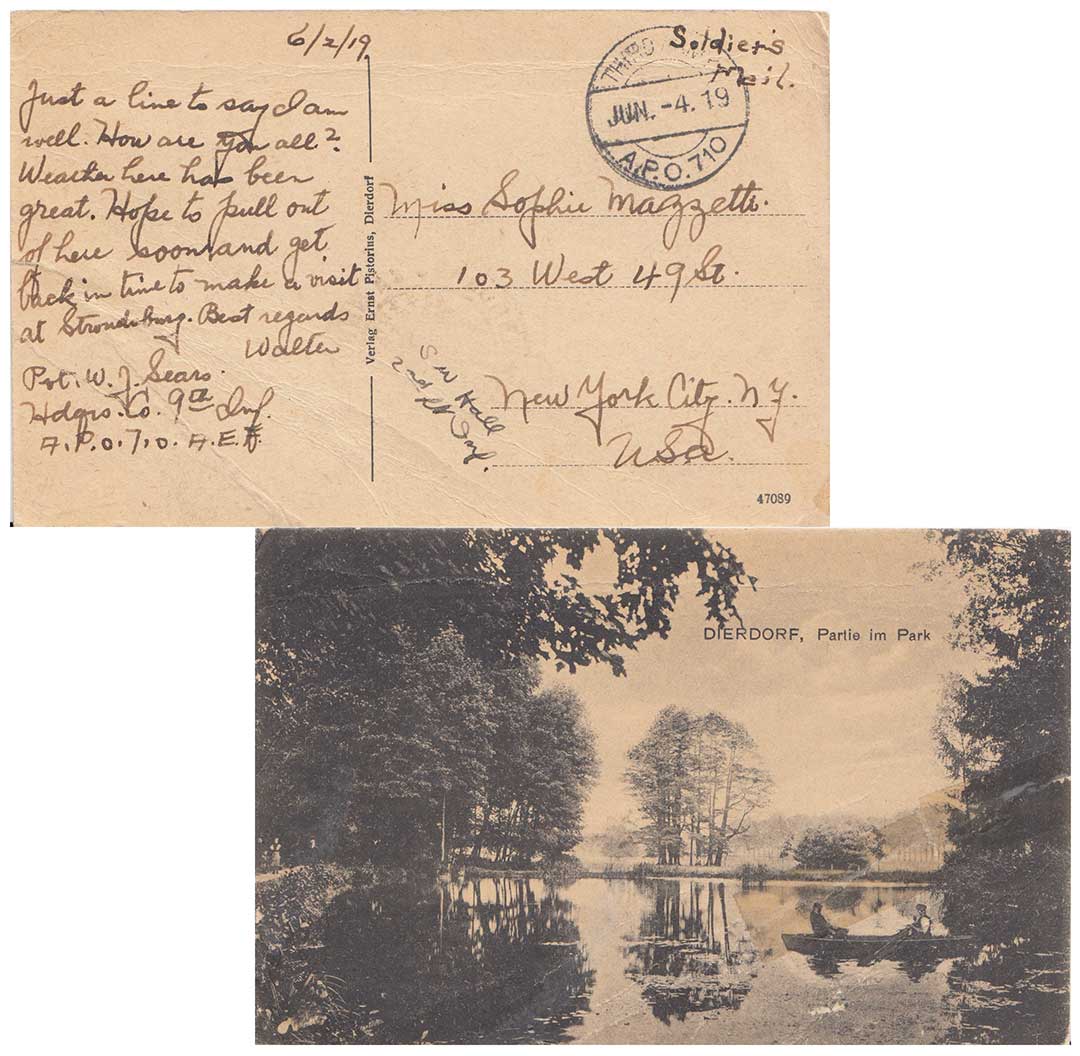 6/2/19
Just a line to say I am
well. How are you all?
Weather here has been
great. Hope to pull out
of here soon and get
back in time to make a visit
at Stroudsburg. Best regards
Walter
Pvt. W. J. Sears.
Hdqrs. Co. 9th Inf.
A.P.O. 710. A.E.F.
Verlag Ernst Pistorius, Dierdorf
Soldier's
Mail.
THIRD
JUN. -4. 19
A.P.O. 710
Miss Sophie Mazzetti.
103 West 49 St.
New York City. N.Y.
USA.
Hall
2nd Lt Inf.
47089
DIERDORF, Partie im Park